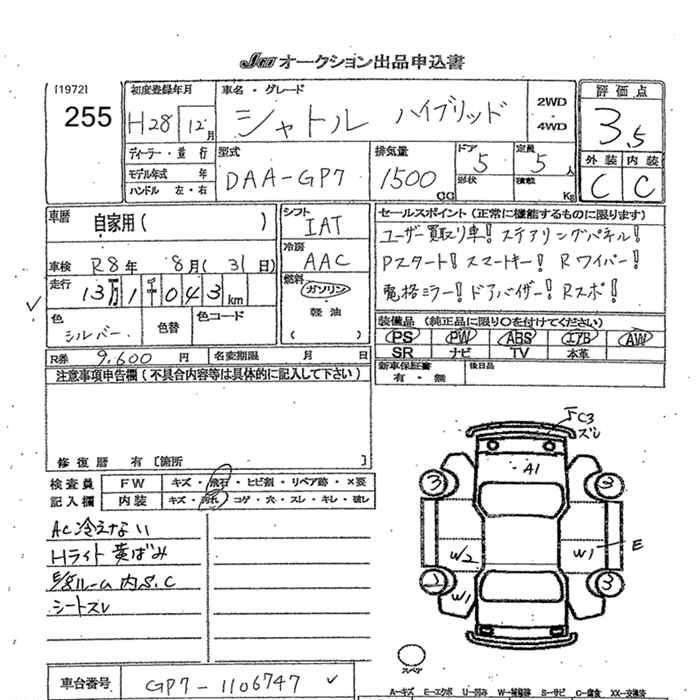 JU オークション出品申込書
[1972]
255
初度登録年月
H28 12月
車名・グレード
シャトル ハイブリッド
2WD
・
4WD
評価点
3.5
ディーラー・並行
モデル年式 年
ハンドル 左・右
型式
DAA-GP7
排気量
1500 CC
ドア
5
形状
定員
5 人
積載
Kg
外装 内装
C C
車歴 自家用( )
シフト
IAT
セールスポイント(正常に機能するものに限ります)
ユーザー買取り車! ステアリングパネル!
Pスタート! スマートキー! Rワイパー!
電格ミラー! ドアバイザー! Rスポ!
冷房
AAC
車検 R8年 8月(31日)
走行 13万1千043km
燃料
ガソリン
・
軽油
( )
色
シルバー
色替
色コード
装備品(純正品に限り○を付けてください)
PS PW ABS エアB AW
SR ナビ TV 本革
R券 9,600円
名変期限 月 日
新車保証書
有・無
後日品
注意事項申告欄(不具合内容等は具体的に記入して下さい)
修復歴 有[箇所 ]
検査員
記入欄
FW キズ・飛石・ヒビ割・リペア跡・×要
内装 キズ・汚れ・コゲ・穴・スレ・キレ・破レ
AC冷えない
Hライト黄ばみ
E/gルーム内S.C
シートスレ
C3
ズレ
A1
3 3
E
W2 W1
3
W1
スペア
車台番号 GP7-1106747
A-キズ E-エクボ U-凹み W-補修跡 S-サビ C-腐食 XX-交換済